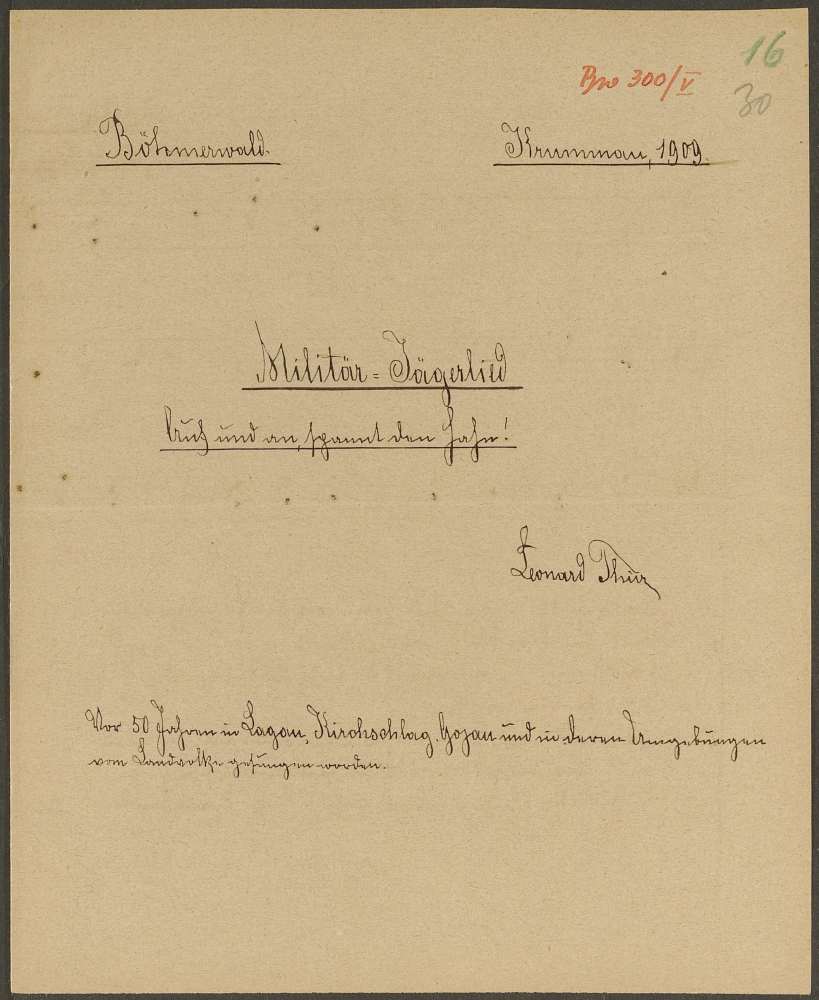 16
300/V
30
Böhmerwald.
Krummau, 1909.
Militär=Jägerlied
und an, spannt den Hahn!
Leonard Thür
Vor 50 Jahren in Lagau, Kirchschlag, Gojau und in deren Umgebungen
vom Landvolke gesungen worden.